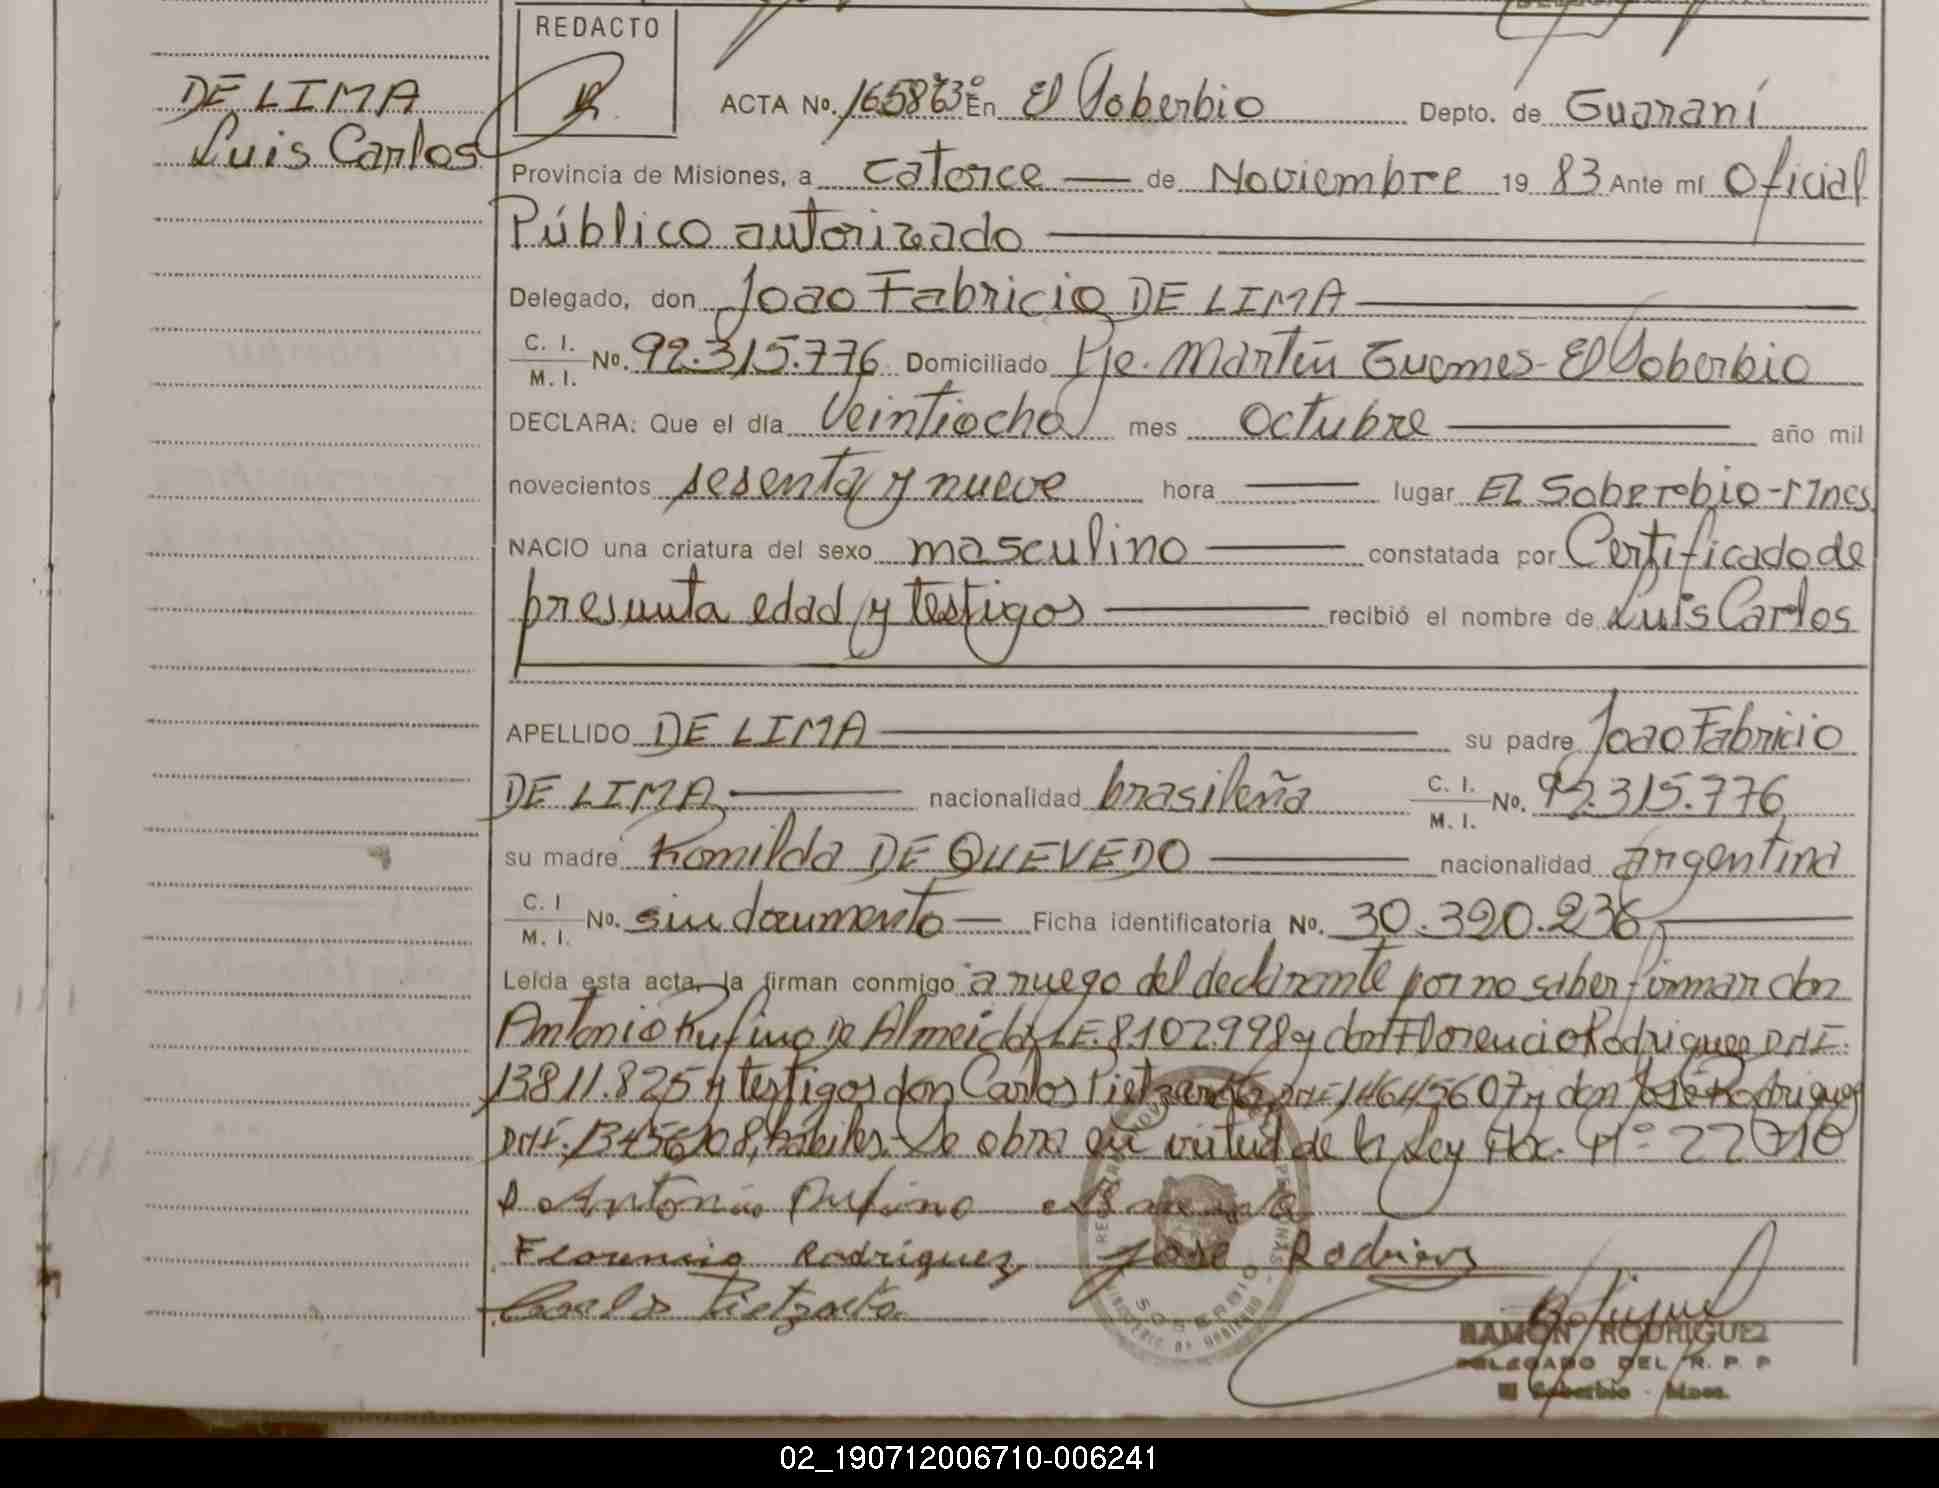 REDACTO
DE LIMA
Luis Carlos
ACTA No. En El Soberbio Depto. de Guaraní
Provincia de Misiones, a catorce — de Noviembre 19 83 Ante mí Oficial
Público autorizado
Delegado, don Joao Fabricio DE LIMA
C. I. M. I. No. 92.315.776 Domiciliado Pje. Martín Guemes - El Soberbio
DECLARA: Que el día Veintiocho mes octubre año mil
novecientos sesenta y nueve hora — lugar EL Soberbio - Mnes
NACIO una criatura del sexo masculino — constatada por Certificado de
presunta edad y testigos — recibió el nombre de Luis Carlos
APELLIDO DE LIMA su padre Joao Fabricio
DE LIMA nacionalidad brasileña C. I. M. I. No. 92.315.776
su madre Romilda DE QUEVEDO nacionalidad argentina
C. I M. I. No. sin documento — Ficha identificatoria No. 30.320.236
Leída esta acta, la firman conmigo a ruego del declarante por no saber firmar don
Antonio Rufino De Almeida LE. 8.102.998 y don Florencio Rodriguez DNI.
13.811.825 y testigos don Carlos DNI 14645607 y don José Rodriguez
DNI. hábiles. Se obra en virtud de la Ley Nac. Nº 22710
Antonio Rufino
Florencio Rodriguez Jose Rodrigues
Carlos
SOBERBIO
RAMON RODRIGUEZ
DELEGADO DEL R. P. P
El Soberbio - Mnes.
02_190712006710-006241